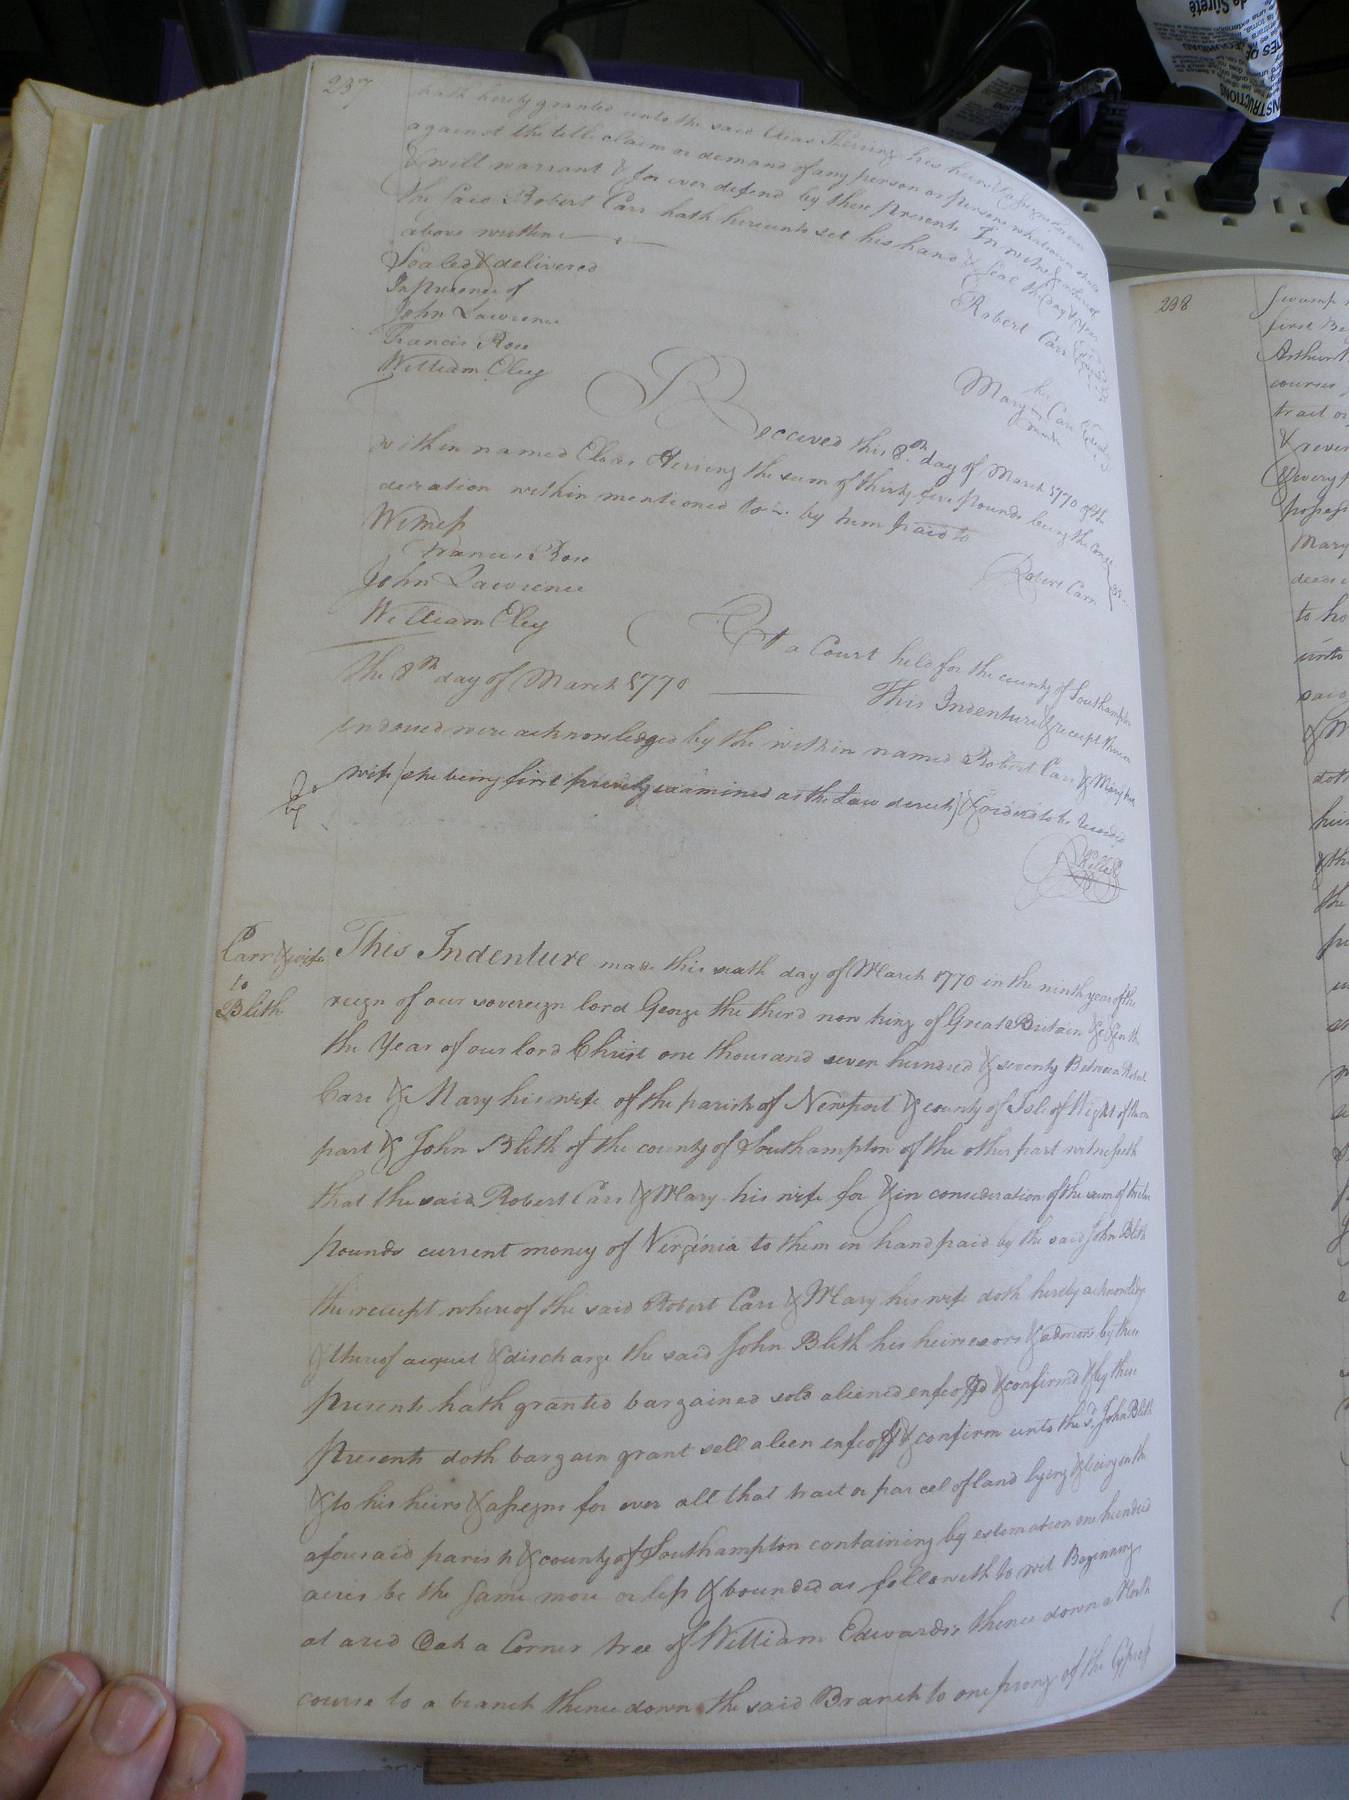 237
hath hereby granted unto the said Elias Herring his heirs & assigns
against the title claim or demand of any person or persons whatsoever shall
& will warrant & for ever defend by these presents In witness whereof
the said Robert Carr hath hereunto set his hand & seal the day & year
above written
Sealed & delivered
In presence of
John Lawrence
Francis Rose
William Eley
Robert Carr
her
Mary Carr
mark
Received this 8th day of March 1770 of the
within named Elias Herring the sum of thirty five pounds being the consi
deration within mentioned to by him paid to
Witness
Francis Rose
John Lawrence
William Eley
Robert Carr
At a Court held for the county of Southampton
the 8th day of March 1770
This Indenture & receipt thereon
indorsed were acknowledged by the within named Robert Carr & Mary his
wife (she being first privily examined as the Law directs) & ordered to be recorded
Carr & wife
to
Blith
This Indenture made this sixth day of March 1770 in the ninth year of the
reign of our sovereign lord George the third now king of Great Britain &c & in the
the Year of our lord Christ one thousand seven hundred & seventy Between Robert
Carr & Mary his wife of the parish of Newport & county of Isle of Wight of the one
part & John Blith of the county of Southampton of the other part witnesseth
that the said Robert Carr & Mary his wife for & in consideration of the sum of twelve
pounds current money of Virginia to them in hand paid by the said John Blith
the receipt whereof the said Robert Carr & Mary his wife doth hereby acknowledge
& thereof acquit & discharge the said John Blith his heirs exors & admors by these
presents hath granted bargained sold aliened enfeoffd & confirmed & by these
presents doth bargain grant sell alien enfeoff & confirm unto the sd. John Blith
& to his heirs & assigns for ever all that tract or parcel of land lying & being in the
aforesaid parish & county of Southampton containing by estemation one hundred
acres be the same more or less & bounded as followeth to wit Beginning
at a red Oak a Corner tree of William Edwards's thence down a North
course to a branch thence down the said Branch to one prong of the Cypress
238
Swamp
first
Arthur
courses
tract or
&
every
Mary
to ho
unto
said
the